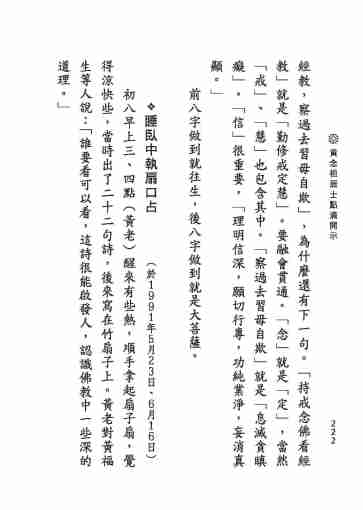 黃念祖居士點滴開示
222
經教，察過去習毋自欺」，為什麼還有下一句。「持戒念佛看經
教」就是「勤修戒定慧」。要融會貫通。「念」就是「定」，當然
「戒」、「慧」也包含其中。「察過去習毋自欺」就是「息滅貪瞋
癡」。「信」很重要，「理明信深，願切行專，功純業淨，妄消真
顯。」
前八字做到就往生，後八字做到就是大菩薩。
❖睡臥中執扇口占
（於1991年5月23日、6月16日）
初八早上三、四點（黃老）醒來有些熱，順手拿起扇子扇，覺
得涼快些，當時出了二十二句詩，後來寫在竹扇子上。黃老對黃福
生等人說：「誰要看可以看，這詩很能啟發人，認識佛教中一些深的
道理。」